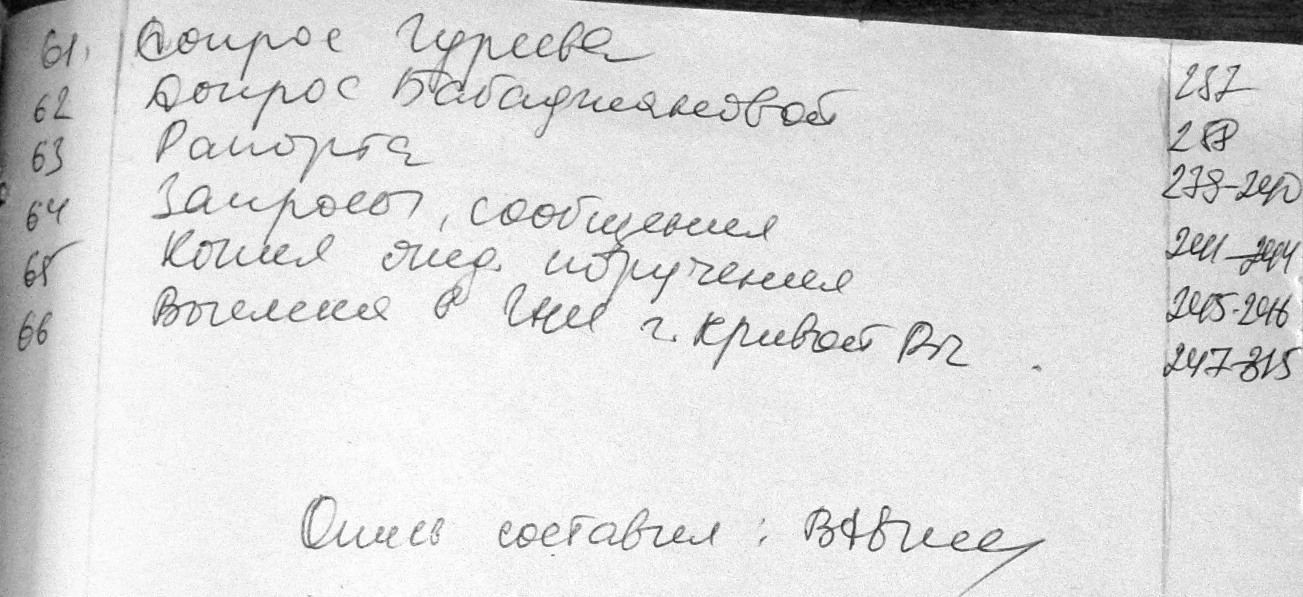 61. Допрос Гуреева 237
62 Допрос Бабаджияновой 238
63 Рапорта 239-240
64 Запросы, сообщения 241-244
65 Копия отд. поручения 245-246
66 Выемка в ГНИ г. Кривой Рог 247-315
Опись составил: